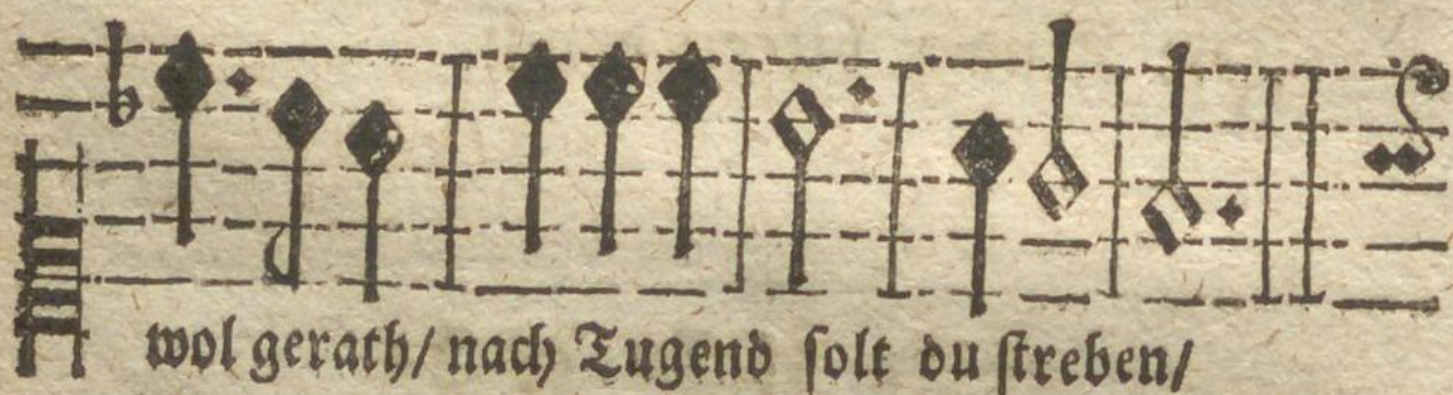 wol gerath/ nach Tugend ſolt du ſtreben/